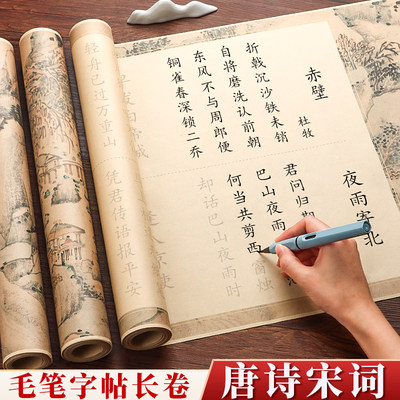 赤壁
杜牧
折戟沉沙铁未销
自将磨洗认前朝
东风不与周郎便
铜雀春深锁二乔
夜雨寄北
君问归期
巴山夜雨
何当共剪西窗烛
却话巴山夜雨时
轻舟已过万重山
凭君传语报平安
毛笔字帖长卷
唐诗宋词